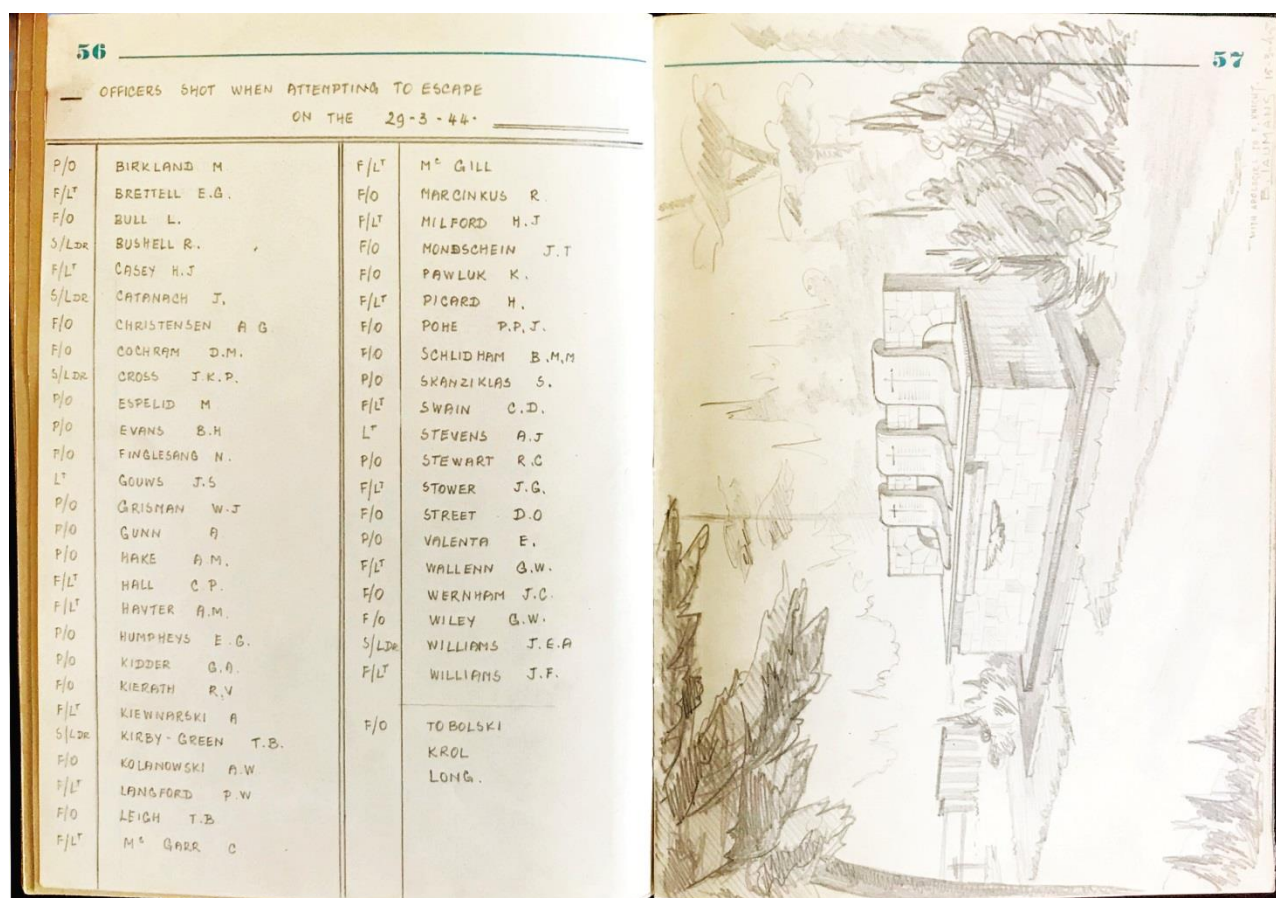 56
OFFICERS SHOT WHEN ATTEMPTING TO ESCAPE
ON THE 29-3-44.
P/O BIRKLAND M
F/LT BRETTELL E.G.
F/O BULL L.
S/LDR BUSHELL R.
F/LT CASEY H.J
S/LDR CATANACH J.
F/O CHRISTENSEN A G
F/O COCHRAM D.M.
S/LDR CROSS J.K.P.
P/O ESPELID M
P/O EVANS B.H
P/O FINGLESANG N.
LT GOUWS J.S
P/O GRISMAN W.J
P/O GUNN A
P/O HAKE A.M.
F/LT HALL C.P.
F/LT HAYTER A.M.
P/O HUMPHEYS E.G.
P/O KIDDER G.A.
F/O KIERATH R.V
F/LT KIEWNARSKI A
S/LDR KIRBY-GREEN T.B.
F/O KOLANOWSKI A.W
F/LT LANGFORD P.W
F/O LEIGH T.B
F/LT Mc GARR C
F/LT Mc GILL
F/O MARCINKUS R.
F/LT MILFORD H.J
F/O MONDSCHEIN J.T
F/O PAWLUK K.
F/LT PICARD H.
F/O POHE P.P.J.
F/O SCHLIDHAM B.M.M
P/O SKANZIKLAS S.
F/LT SWAIN C.D.
LT STEVENS A.J
P/O STEWART R.C
F/LT STOWER J.G.
F/O STREET D.O
P/O VALENTA E.
F/LT WALLENN G.W.
F/O WERNHAM J.C.
F/O WILEY G.W.
S/LDR WILLIAMS J.E.A
F/LT WILLIAMS J.F.
F/O TOBOLSKI
KROL
LONG.
57
WITH APOLOGIES TO F. KNIGHT